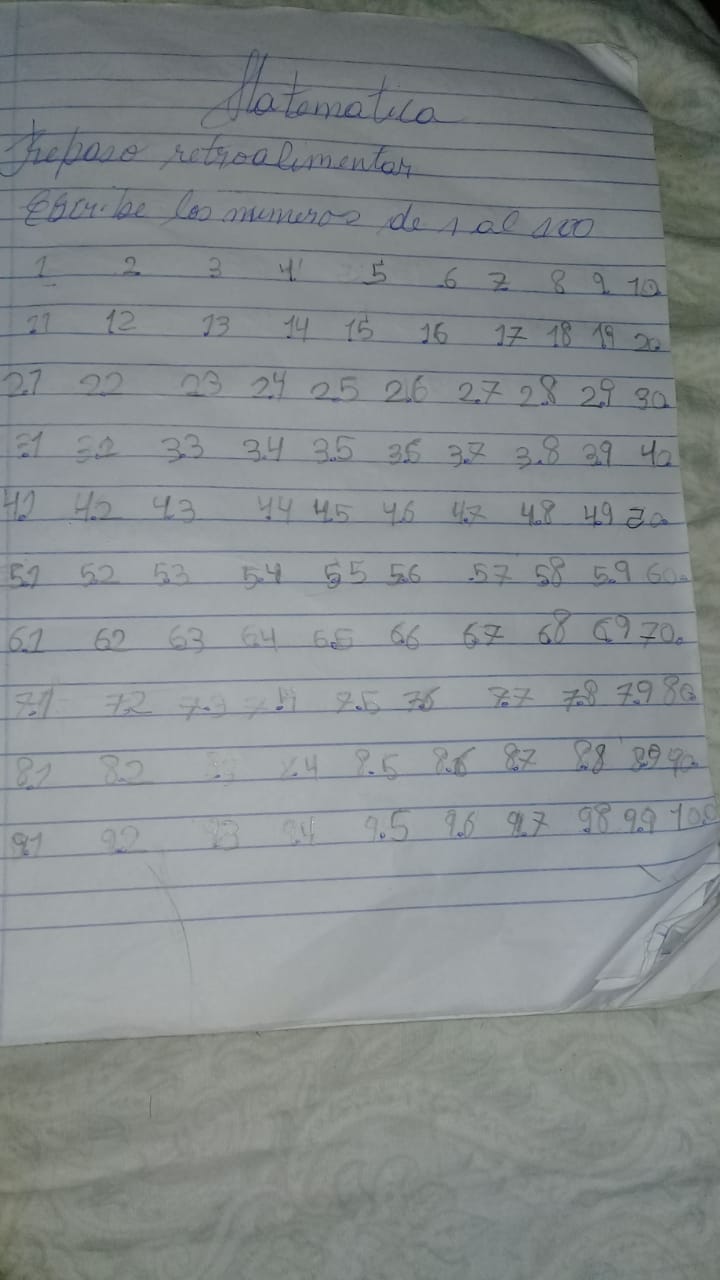 Matematica
Repaso retroalimentar
Escribe los numeros de 1 al 100
1 2 3 4 5 6 7 8 9 10
11 12 13 14 15 16 17 18 19 20
21 22 23 24 25 26 27 28 29 30
31 32 33 34 35 36 37 38 39 40
41 42 43 44 45 46 47 48 49 50
51 52 53 54 55 56 57 58 59 60
61 62 63 64 65 66 67 68 69 70
71 72 73 74 75 76 77 78 79 80
81 82 83 84 85 86 87 88 89 90
91 92 93 94 95 96 97 98 99 100